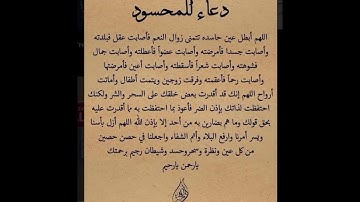 دعاء للمحسود
اللهم أبطل عين حاسده تتمنى زوال النعم فأصابت عقل فبلدته
وأصابت جسدا فأمرضته وأصابت عضواً فأعطلته وأصابت جمال
فشوهته وأصابت شعراً فأسقطته وأصابت أعين فأمرضتها
وأصابت رحماً فأعقمته وفرقت زوجين ويتمت أطفال وأماتت
أرواح اللهم إنك قد أقدرت بعض خلقك على السحر والشر ولكنك
احتفظت لذاتك بإذن الضر فأعوذ بما احتفظت به مما أقدرت عليه
بحق قولك وما هم بضارين به من أحد إلا بإذن الله اللهم أزل بأسنا
ويسر أمرنا وارفع البلاء وأتم الشفاء واجعلنا في حصن حصين
من كل عين ونظرة وسحر وحسد وشيطان رجيم برحمتك
يارحمن يارحيم